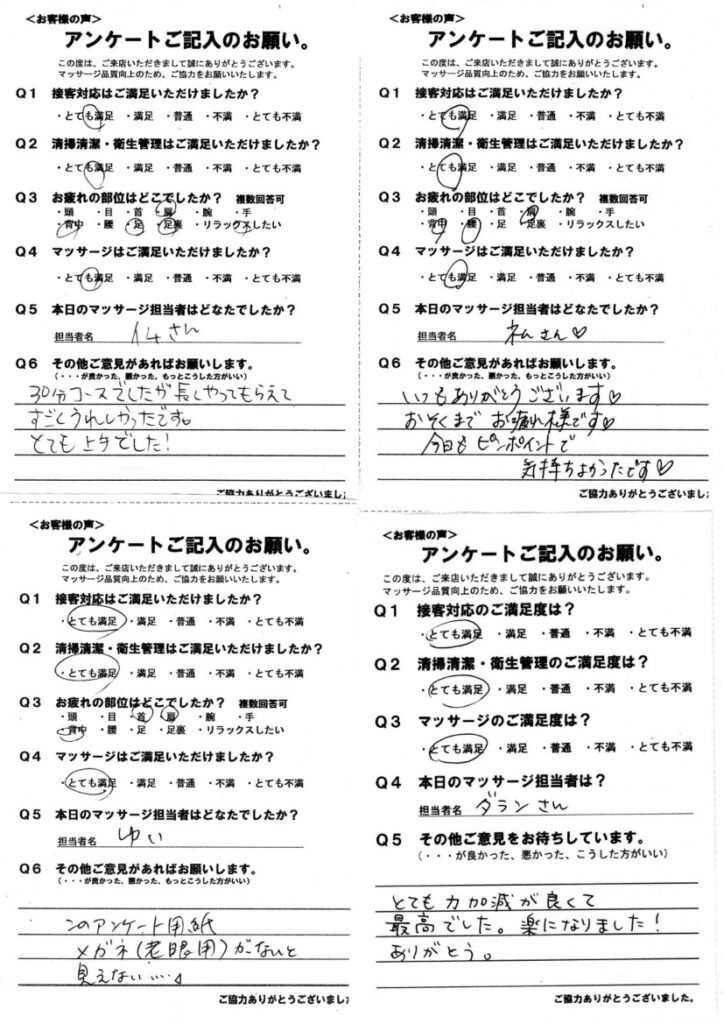 ＜お客様の声＞
アンケートご記入のお願い。
この度は、ご来店いただきまして誠にありがとうございます。
マッサージ品質向上のため、ご協力をお願いいたします。
Q1 接客対応はご満足いただけましたか？
・とても満足 ・満足 ・普通 ・不満 ・とても不満
Q2 清掃清潔・衛生管理はご満足いただけましたか？
・とても満足 ・満足 ・普通 ・不満 ・とても不満
Q3 お疲れの部位はどこでしたか？ 複数回答可
・頭 ・目 ・首 ・肩 ・腕 ・手
・背中 ・腰 ・足 ・足裏 ・リラックスしたい
Q4 マッサージはご満足いただけましたか？
・とても満足 ・満足 ・普通 ・不満 ・とても不満
Q5 本日のマッサージ担当者はどなたでしたか？
担当者名 さん
Q6 その他ご意見があればお願いします。
（・・・が良かった、悪かった、もっとこうした方がいい）
30分コースでしたが長くやってもらえて
すごくうれしかったです。
とても上手でした！
ご協力ありがとうございまし
＜お客様の声＞
アンケートご記入のお願い。
この度は、ご来店いただきまして誠にありがとうございます。
マッサージ品質向上のため、ご協力をお願いいたします。
Q1 接客対応はご満足いただけましたか？
・とても満足 ・満足 ・普通 ・不満 ・とても不満
Q2 清掃清潔・衛生管理はご満足いただけましたか？
・とても満足 ・満足 ・普通 ・不満 ・とても不満
Q3 お疲れの部位はどこでしたか？ 複数回答可
・頭 ・目 ・首 ・肩 ・腕 ・手
・背中 ・腰 ・足 ・足裏 ・リラックスしたい
Q4 マッサージはご満足いただけましたか？
・とても満足 ・満足 ・普通 ・不満 ・とても不満
Q5 本日のマッサージ担当者はどなたでしたか？
担当者名 ネムさん♡
Q6 その他ご意見があればお願いします。
（・・・が良かった、悪かった、もっとこうした方がいい）
いつもありがとうございます♡
おそくまでお疲れ様です♡
今日もピンポイントで
気持ちよかったです♡
ご協力ありがとうございまし
＜お客様の声＞
アンケートご記入のお願い。
この度は、ご来店いただきまして誠にありがとうございます。
マッサージ品質向上のため、ご協力をお願いいたします。
Q1 接客対応はご満足いただけましたか？
・とても満足 ・満足 ・普通 ・不満 ・とても不満
Q2 清掃清潔・衛生管理はご満足いただけましたか？
・とても満足 ・満足 ・普通 ・不満 ・とても不満
Q3 お疲れの部位はどこでしたか？ 複数回答可
・頭 ・目 ・首 ・肩 ・腕 ・手
・背中 ・腰 ・足 ・足裏 ・リラックスしたい
Q4 マッサージはご満足いただけましたか？
・とても満足 ・満足 ・普通 ・不満 ・とても不満
Q5 本日のマッサージ担当者はどなたでしたか？
担当者名 ゆい
Q6 その他ご意見があればお願いします。
（・・・が良かった、悪かった、もっとこうした方がいい）
このアンケート用紙
メガネ(老眼用)がないと
見えない…。
ご協力ありがとうございまし
＜お客様の声＞
アンケートご記入のお願い。
この度は、ご来店いただきまして誠にありがとうございます。
マッサージ品質向上のため、ご協力をお願いいたします。
Q1 接客対応のご満足度は？
・とても満足 ・満足 ・普通 ・不満 ・とても不満
Q2 清掃清潔・衛生管理のご満足度は？
・とても満足 ・満足 ・普通 ・不満 ・とても不満
Q3 マッサージのご満足度は？
・とても満足 ・満足 ・普通 ・不満 ・とても不満
Q4 本日のマッサージ担当者は？
担当者名 ダランさん
Q5 その他ご意見をお待ちしています。
（・・・が良かった、悪かった、こうした方がいい）
とても力加減が良くて
最高でした。楽になりました！
ありがとう。
ご協力ありがとうございました。